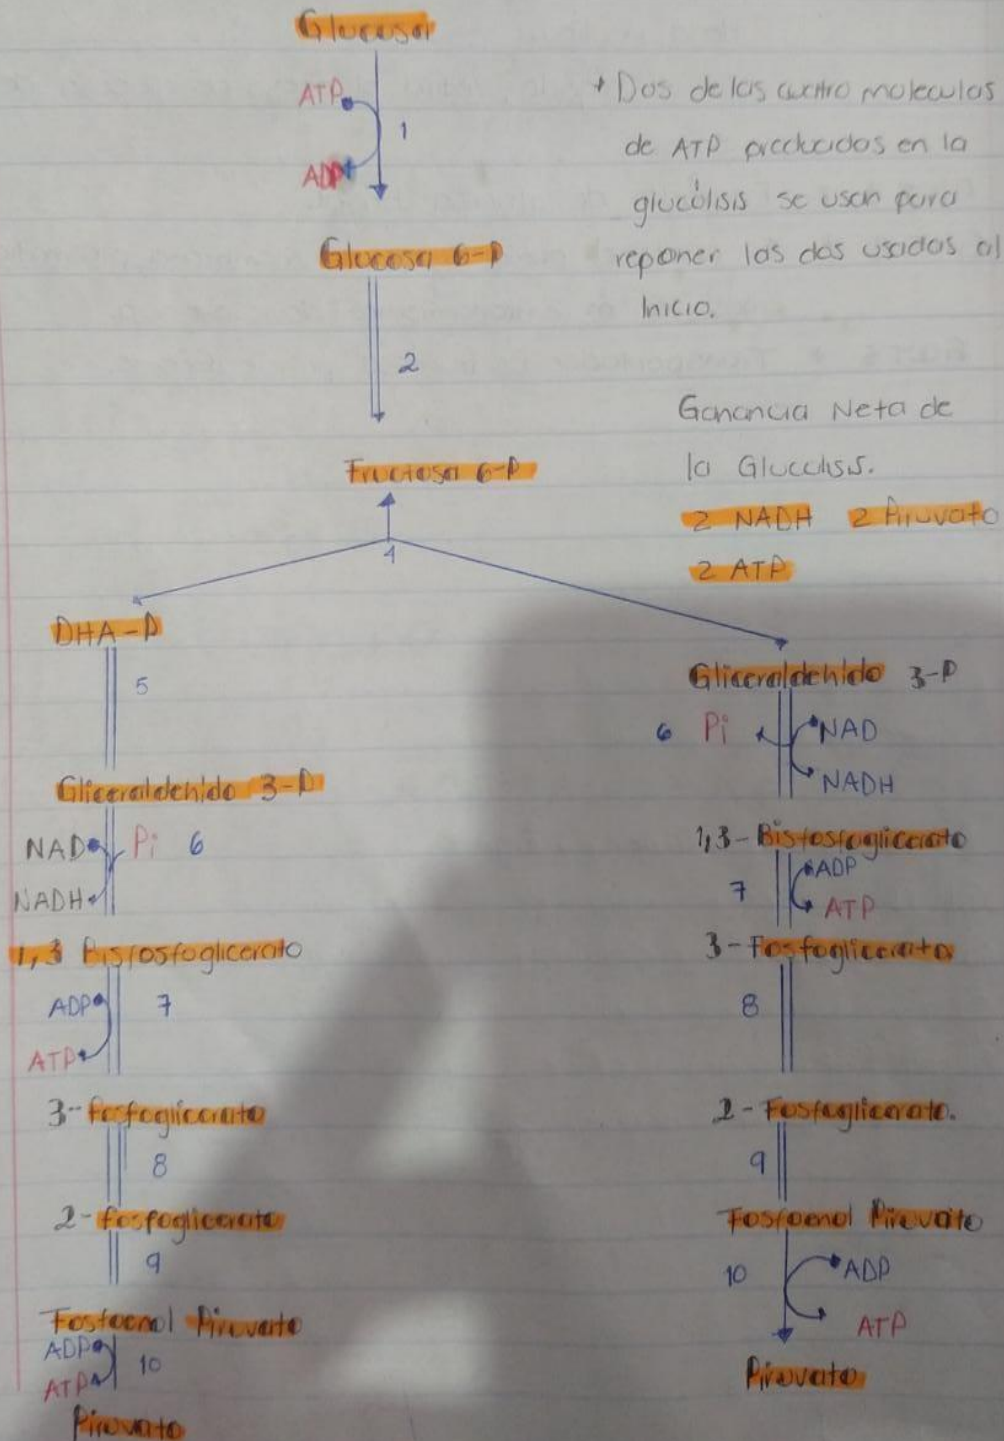 Glucosa
ATP
1
ADP
+ Dos de las cuatro moleculas
de ATP producidas en la
glucólisis se usan para
reponer las dos usadas al
Inicio.
Glucosa 6-P
2
Fructosa 6-P
4
Ganancia Neta de
la Glucolisis.
2 NADH 2 Piruvato
2 ATP
DHA-P
5
Gliceraldehido 3-P
NAD Pi 6
NADH
1,3 Bisfosfoglicerato
ADP 7
ATP
3-fosfoglicerato
8
2-fosfoglicerato
9
Fosfoenol Piruvato
ADP 10
ATP
Piruvato
Gliceraldehido 3-P
6 Pi NAD
NADH
1,3-Bisfosfoglicerato
ADP
7
ATP
3-Fosfoglicerato
8
2-Fosfoglicerato.
9
Fosfoenol Piruvato
10 ADP
ATP
Piruvato